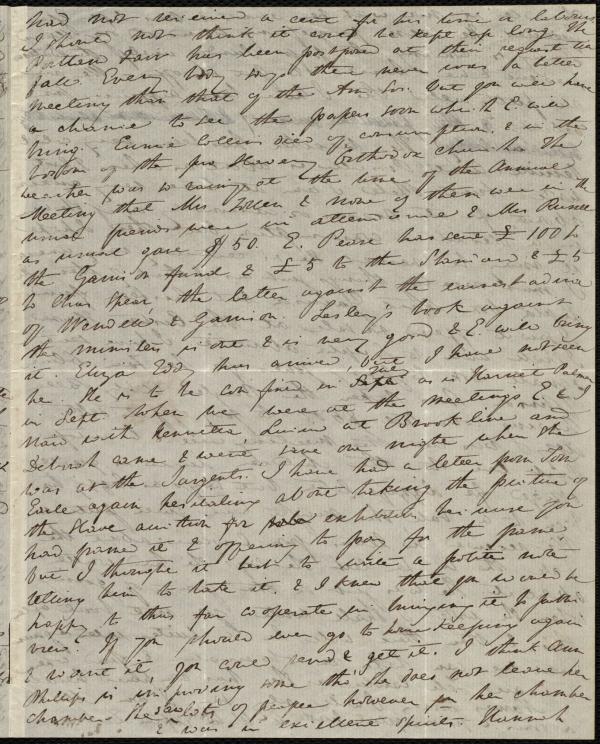 had not received a cent for his time & labours
I should not think it could be kept up long. The
Boston Fair has been postponed at their request till
fall. Every body says there never was a better
meeting than that of the Am. Soc. but you will have
a chance to see the papers soon which E. will
bring. Eunice Collins died of consumption & in the
bosom of the pro slavery Orthodox church. The
weather was so rainy at the time of the Annual
Meeting that Mrs Follen & none of them were in the
usual were in attendance & Mrs Russell
as usual gave $50. E. Pease has sent £100 to
the Garrison fund & £5 to the Standard & £5
to Chas Spear the latter against the earnest advice
of Wendell & Garrison. Lesley's book against
the ministers is out & is very good & E. will bring
it. Eliza Eddy has arrived, but I have not seen
her. She is to be confined in July as is Harriet
in Sept. When we were at the meetings E. & I
were with Henrietta at Brookline and
Deborah came & went save one night when she
was at the Sargents. I have had a letter from Tom
Earle again hesitating about taking the picture of
the Slave auction for exhibition because you
had framed it & offering to pay for the frame
but I thought it best to write a polite note
telling him to take it. & I knew that you would be
happy to thus far cooperate in bringing it to public
view. If you should ever go to housekeeping again
& want it, you could send & get it. I think Ann
Phillips is improving some tho' she does not leave her
chamber. She sees lots of people however in her chamber
& was in excellent spirits. Hannah